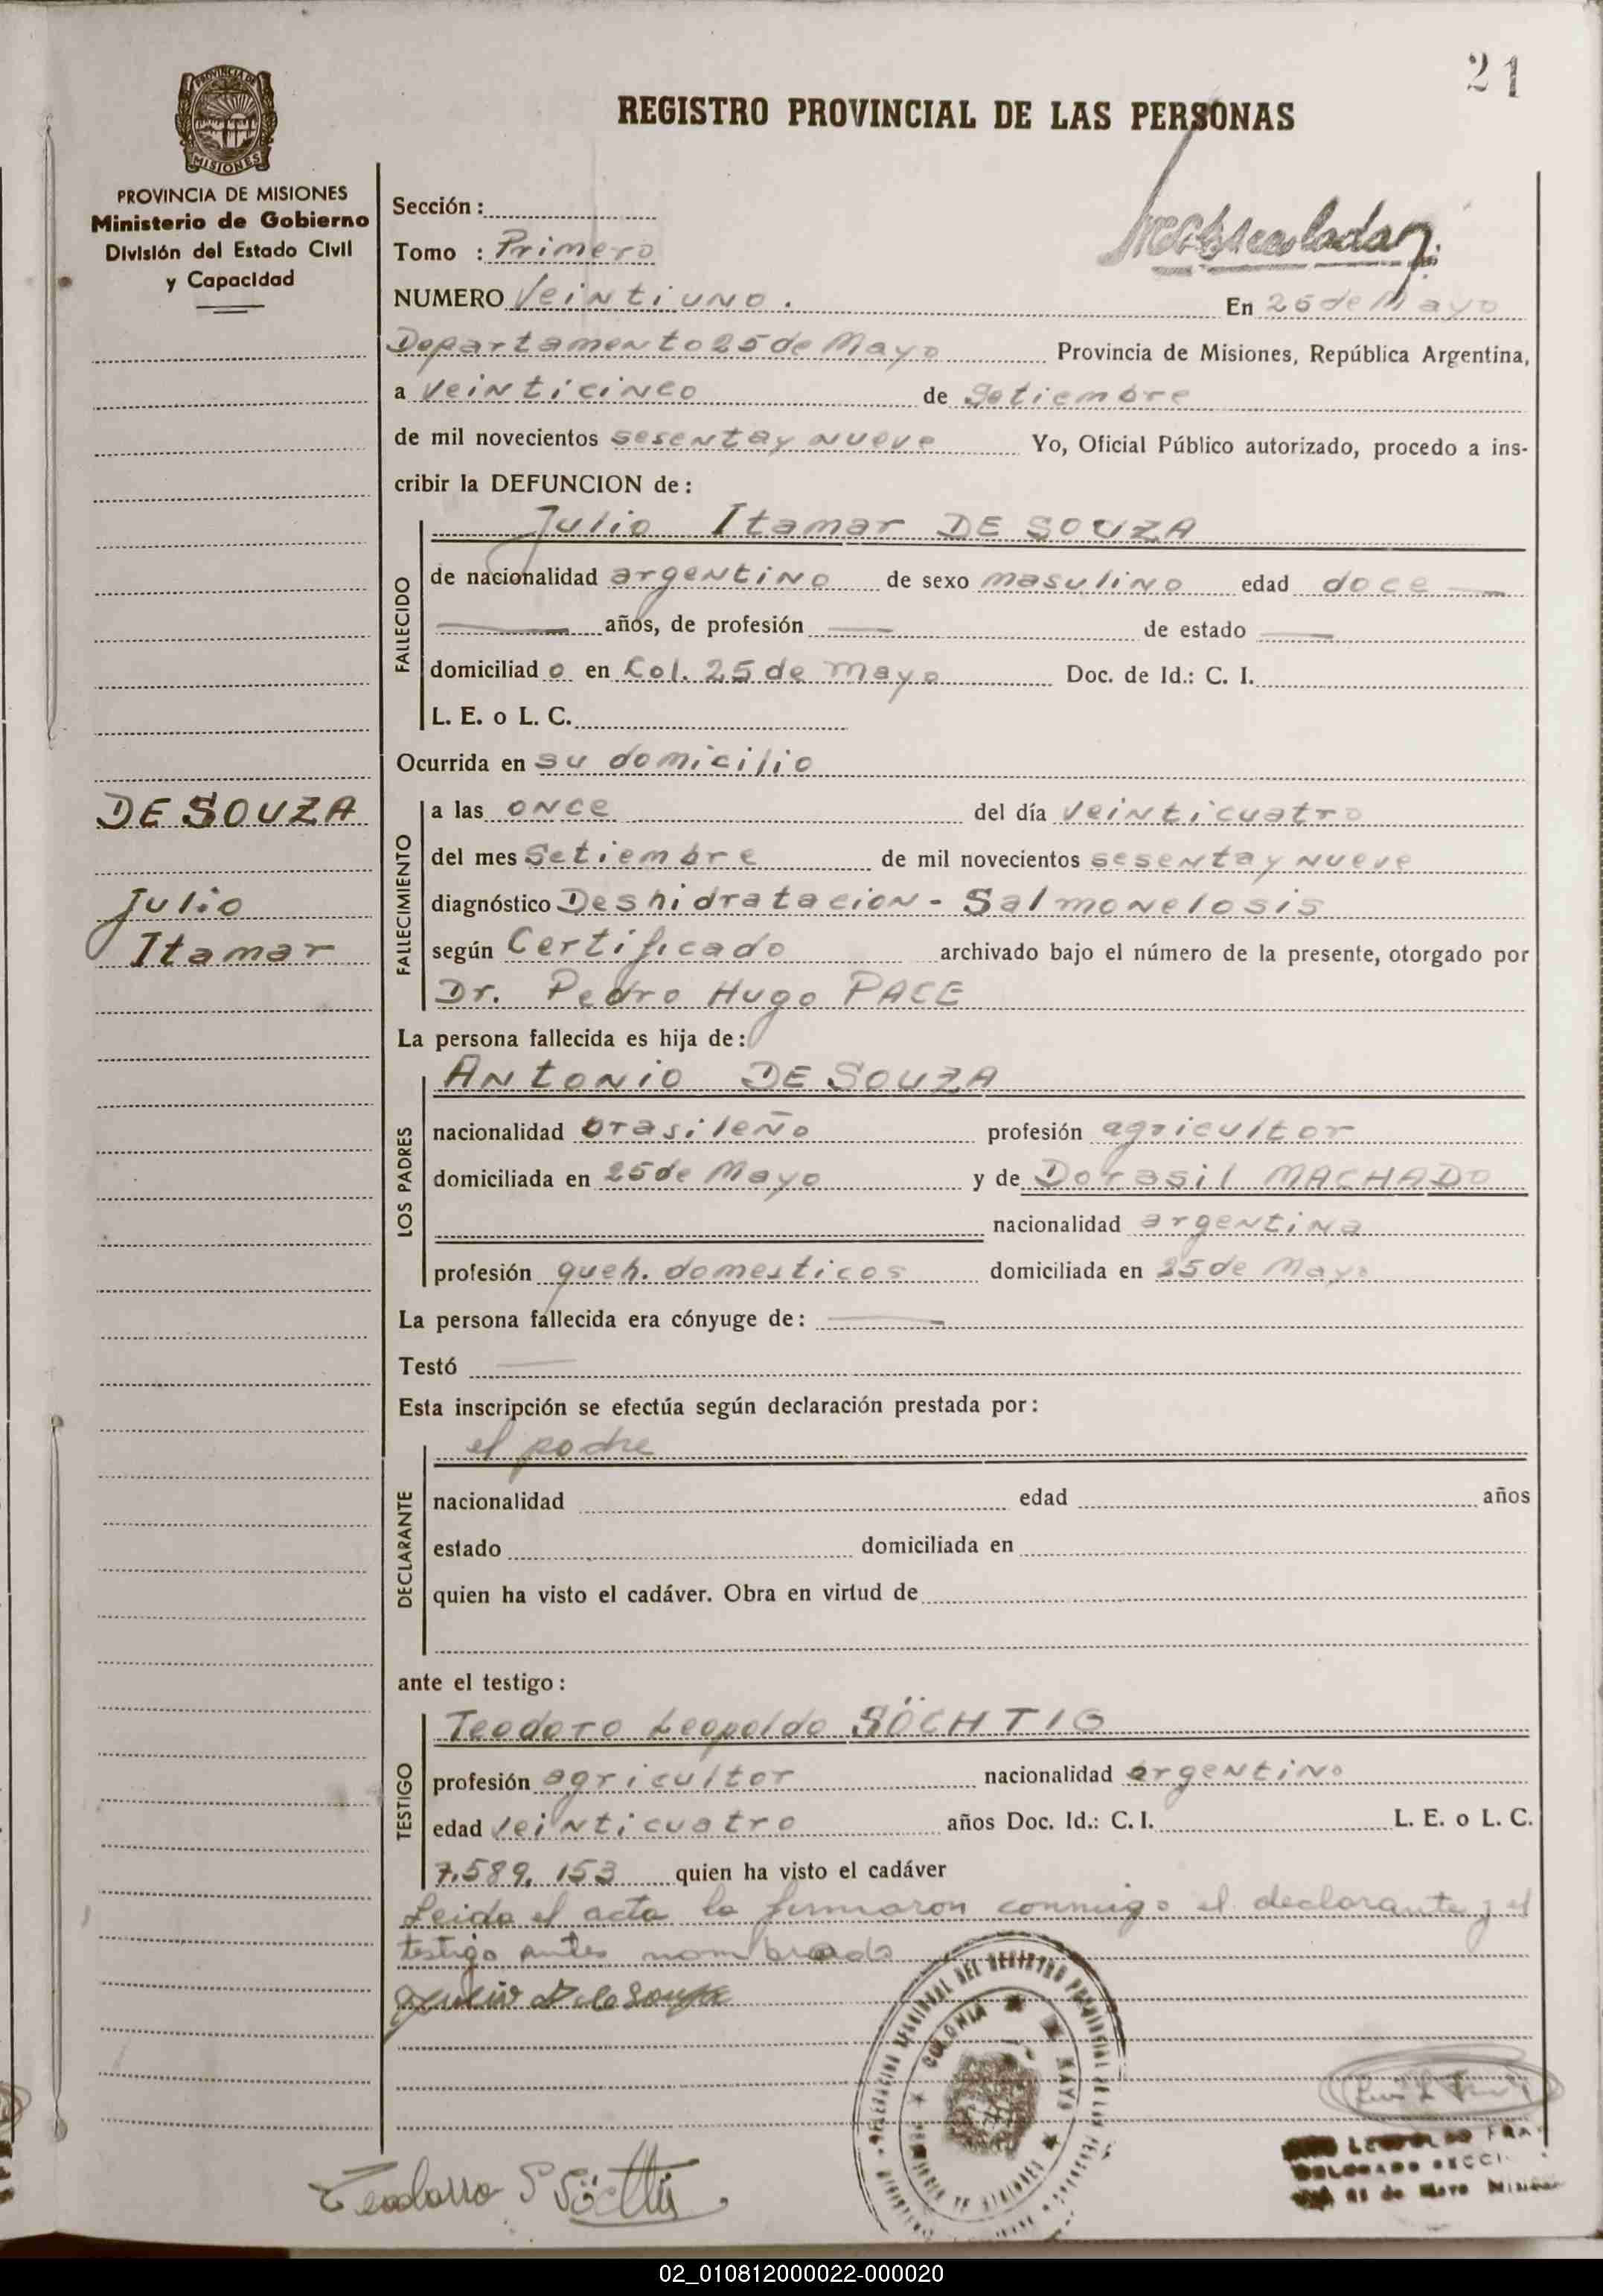 21
REGISTRO PROVINCIAL DE LAS PERSONAS
PROVINCIA DE MISIONES
MISIONES
PROVINCIA DE MISIONES
Ministerio de Gobierno
División del Estado Civil
y Capacidad
Sección :
Tomo : Primero
NUMERO Veintiuno . En 25 de Mayo
Departamento 25 de Mayo Provincia de Misiones, República Argentina,
a Veinticinco de Setiembre
de mil novecientos sesenta y nueve Yo, Oficial Público autorizado, procedo a ins-
cribir la DEFUNCION de :
Julio Itamar DE SOUZA
FALLECIDO
de nacionalidad argentino de sexo masulino edad doce —
— años, de profesión — de estado —
domiciliad o en Col. 25 de Mayo Doc. de Id.: C. I.
L. E. o L. C.
Ocurrida en su domicilio
DE SOUZA
Julio
Itamar
FALLECIMIENTO
a las once del día Veinticuatro
del mes Setiembre de mil novecientos sesenta y nueve
diagnóstico Deshidratacion - Salmonelosis
según Certificado archivado bajo el número de la presente, otorgado por
Dr. Pedro Hugo PACE
La persona fallecida es hija de :
Antonio DE SOUZA
LOS PADRES
nacionalidad brasileño profesión agricultor
domiciliada en 25 de Mayo y de Dorasil MACHADO
nacionalidad argentina
profesión queh. domesticos domiciliada en 25 de Mayo
La persona fallecida era cónyuge de : —
Testó —
Esta inscripción se efectúa según declaración prestada por :
el padre
DECLARANTE
nacionalidad edad años
estado domiciliada en
quien ha visto el cadáver. Obra en virtud de
ante el testigo :
Teodoro Leopoldo SÖCHTIG
TESTIGO
profesión agricultor nacionalidad argentino
edad Veinticuatro años Doc. Id.: C. I. L. E. o L. C.
7.589.153 quien ha visto el cadáver
Leida el acta la firmaron conmigo el declarante y el
testigo antes nombrado
COLONIA MAYO
02_010812000022-000020